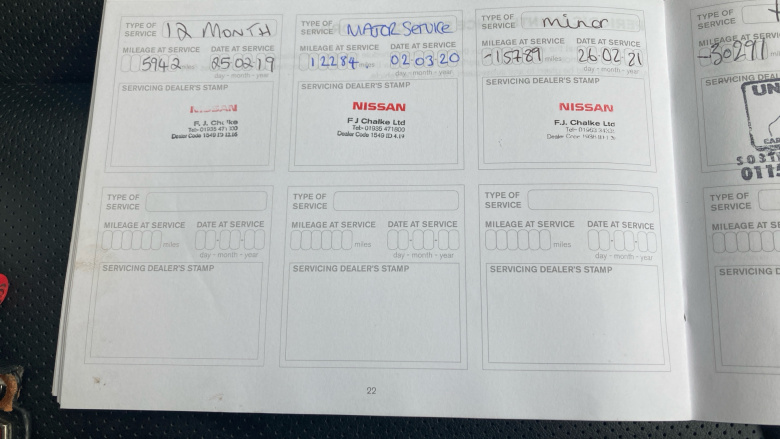 TYPE OF SERVICE 12 MONTH
MILEAGE AT SERVICE DATE AT SERVICE
5942 miles 25 02 19
day - month - year
SERVICING DEALER'S STAMP
NISSAN
F. J. Chalke
Tel:- 01935 471
Dealer Code 1549
TYPE OF SERVICE MAJOR SERVICE
MILEAGE AT SERVICE DATE AT SERVICE
12284 02 03 20
day - month - year
SERVICING DEALER'S STAMP
NISSAN
F J Chalke Ltd
Tel:- 01935 471800
Dealer Code 1549 ID 4.19
TYPE OF SERVICE minor
MILEAGE AT SERVICE DATE AT SERVICE
-15789 miles 26 02 21
day - month - year
SERVICING DEALER'S STAMP
NISSAN
F.J. Chalke Ltd
Dealer Code
TYPE OF SERVICE
MILEAGE AT SERVICE
-30291 miles
SERVICING DEAL
UN
CAR
0115
TYPE OF SERVICE
MILEAGE AT SERVICE DATE AT SERVICE
miles
day - month - year
SERVICING DEALER'S STAMP
TYPE OF SERVICE
MILEAGE AT SERVICE DATE AT SERVICE
miles
day - month - year
SERVICING DEALER'S STAMP
TYPE OF SERVICE
MILEAGE AT SERVICE DATE AT SERVICE
miles
day - month - year
SERVICING DEALER'S STAMP
TYPE OF SERVICE
MILEAGE AT S
SERVICING D
22